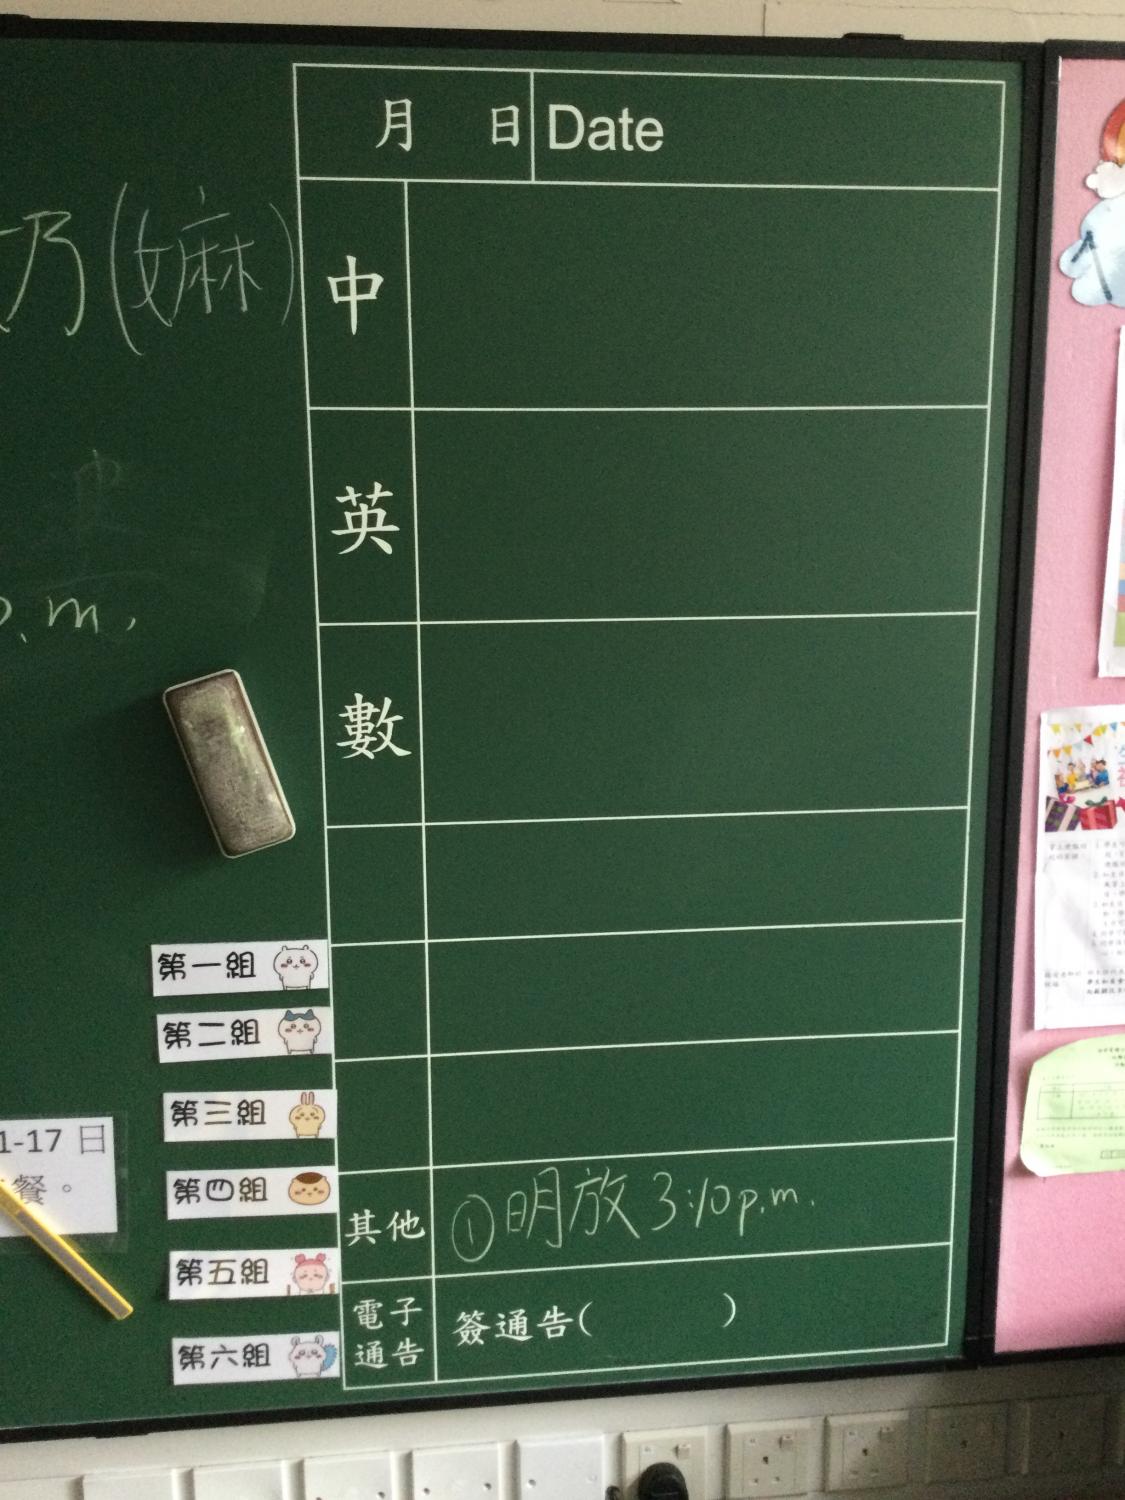 月 日 Date
乃(嫲)
中
英
p.m.
數
第一組
第二組
第三組
1-17 日
餐。
第四組
其他 ①明放 3:10p.m.
第五組
電子通告 簽通告( )
第六組